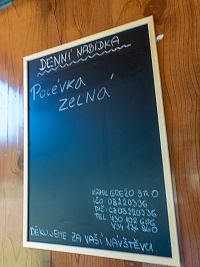 DENNÍ NABÍDKA
POLÉVKA
ZELNÁ
KAMIL GREŽO S.R.O
IČO 08220336
DIČ: CZ08220336
TEL.
DĚKUJEME ZA VAŠÍ NÁVŠTĚVU.